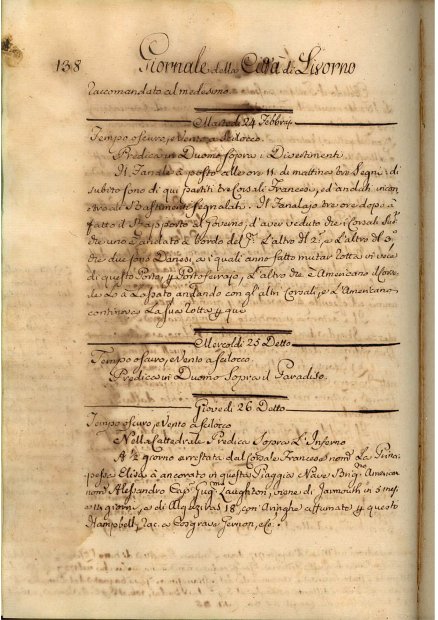 138 Giornale della Città di Livorno
Raccomandato al medesimo.
Martedi 24 Febbraio
Tempo oscuro, e Vento a Scilocco.
Predica in Duomo sopra i Divertimenti.
Il Fanale à posto alle ore 11. di mattina tre Segni, di
subito sono di qui partiti tre Corsali Francesi, ed andati incon
tro ai Bastimenti segnalati. Il Fanalajo tre ore dopo à
fatto il Rapporto al Governo, d'aver veduto che i Corsali
che uno è andato a bordo del P.º L'altro del 2.º, e L'altro del 3.º
che due sono Danesi, a i quali anno fatto mutar rotta in vece
di questo Porto, p Portoferrajo, L'altro che è Americano il Corsa
le Lo à Lasciato andando con gl'altri Corsali, e L'Americano
continova La sua rotta p qui
Mercoldi 25 Detto
Tempo oscuro, e Vento a scilocco.
Predica in Duomo Sopra il Paradiso.
Giovedi 26 Detto
Tempo oscuro, e Vento a scilocco
Nella Cattedrale Predica Sopra L'Inferno
A 2 giorno arrestata dal Corsale Francese nom.º La Prin
pessa Elisa è ancorato in questa Piaggia Nave Brig.º America
nom.º Alessandro Cap.º Gug.mo Laughton, viene di Jarmouth in 5 mesi
e 14 giorni, e di Algeziras 18, con Aringhe affumate p questo
Hampbell, Rac. a Cosgrave Gernon, etc.